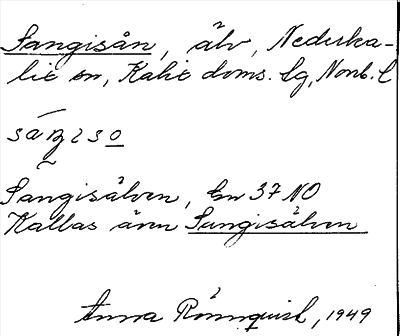 Sangisån, älv, Nederka-
lix sn, Kalix doms. lg, Norrb. l
sáŋɩso
Sangisälven, Gsn 37 NO
Kallas även Sungisälven
Anna Rönnqvist, 1949